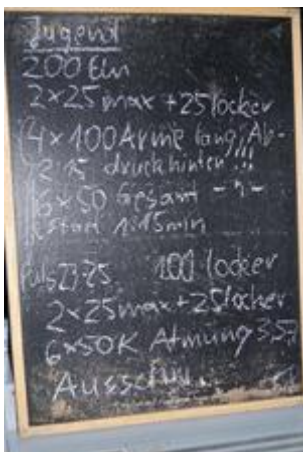 Jugend
200 Ein
2x25 max + 25 locker
4x100 Arme lang, Ab-
2'15 druck hinten!!!
6x50 Gesamt -"-
Start 1:15min
Puls 23-25 100 locker
2x25max + 25locker
6x50K Atmung 3,5,7
Ausschw.